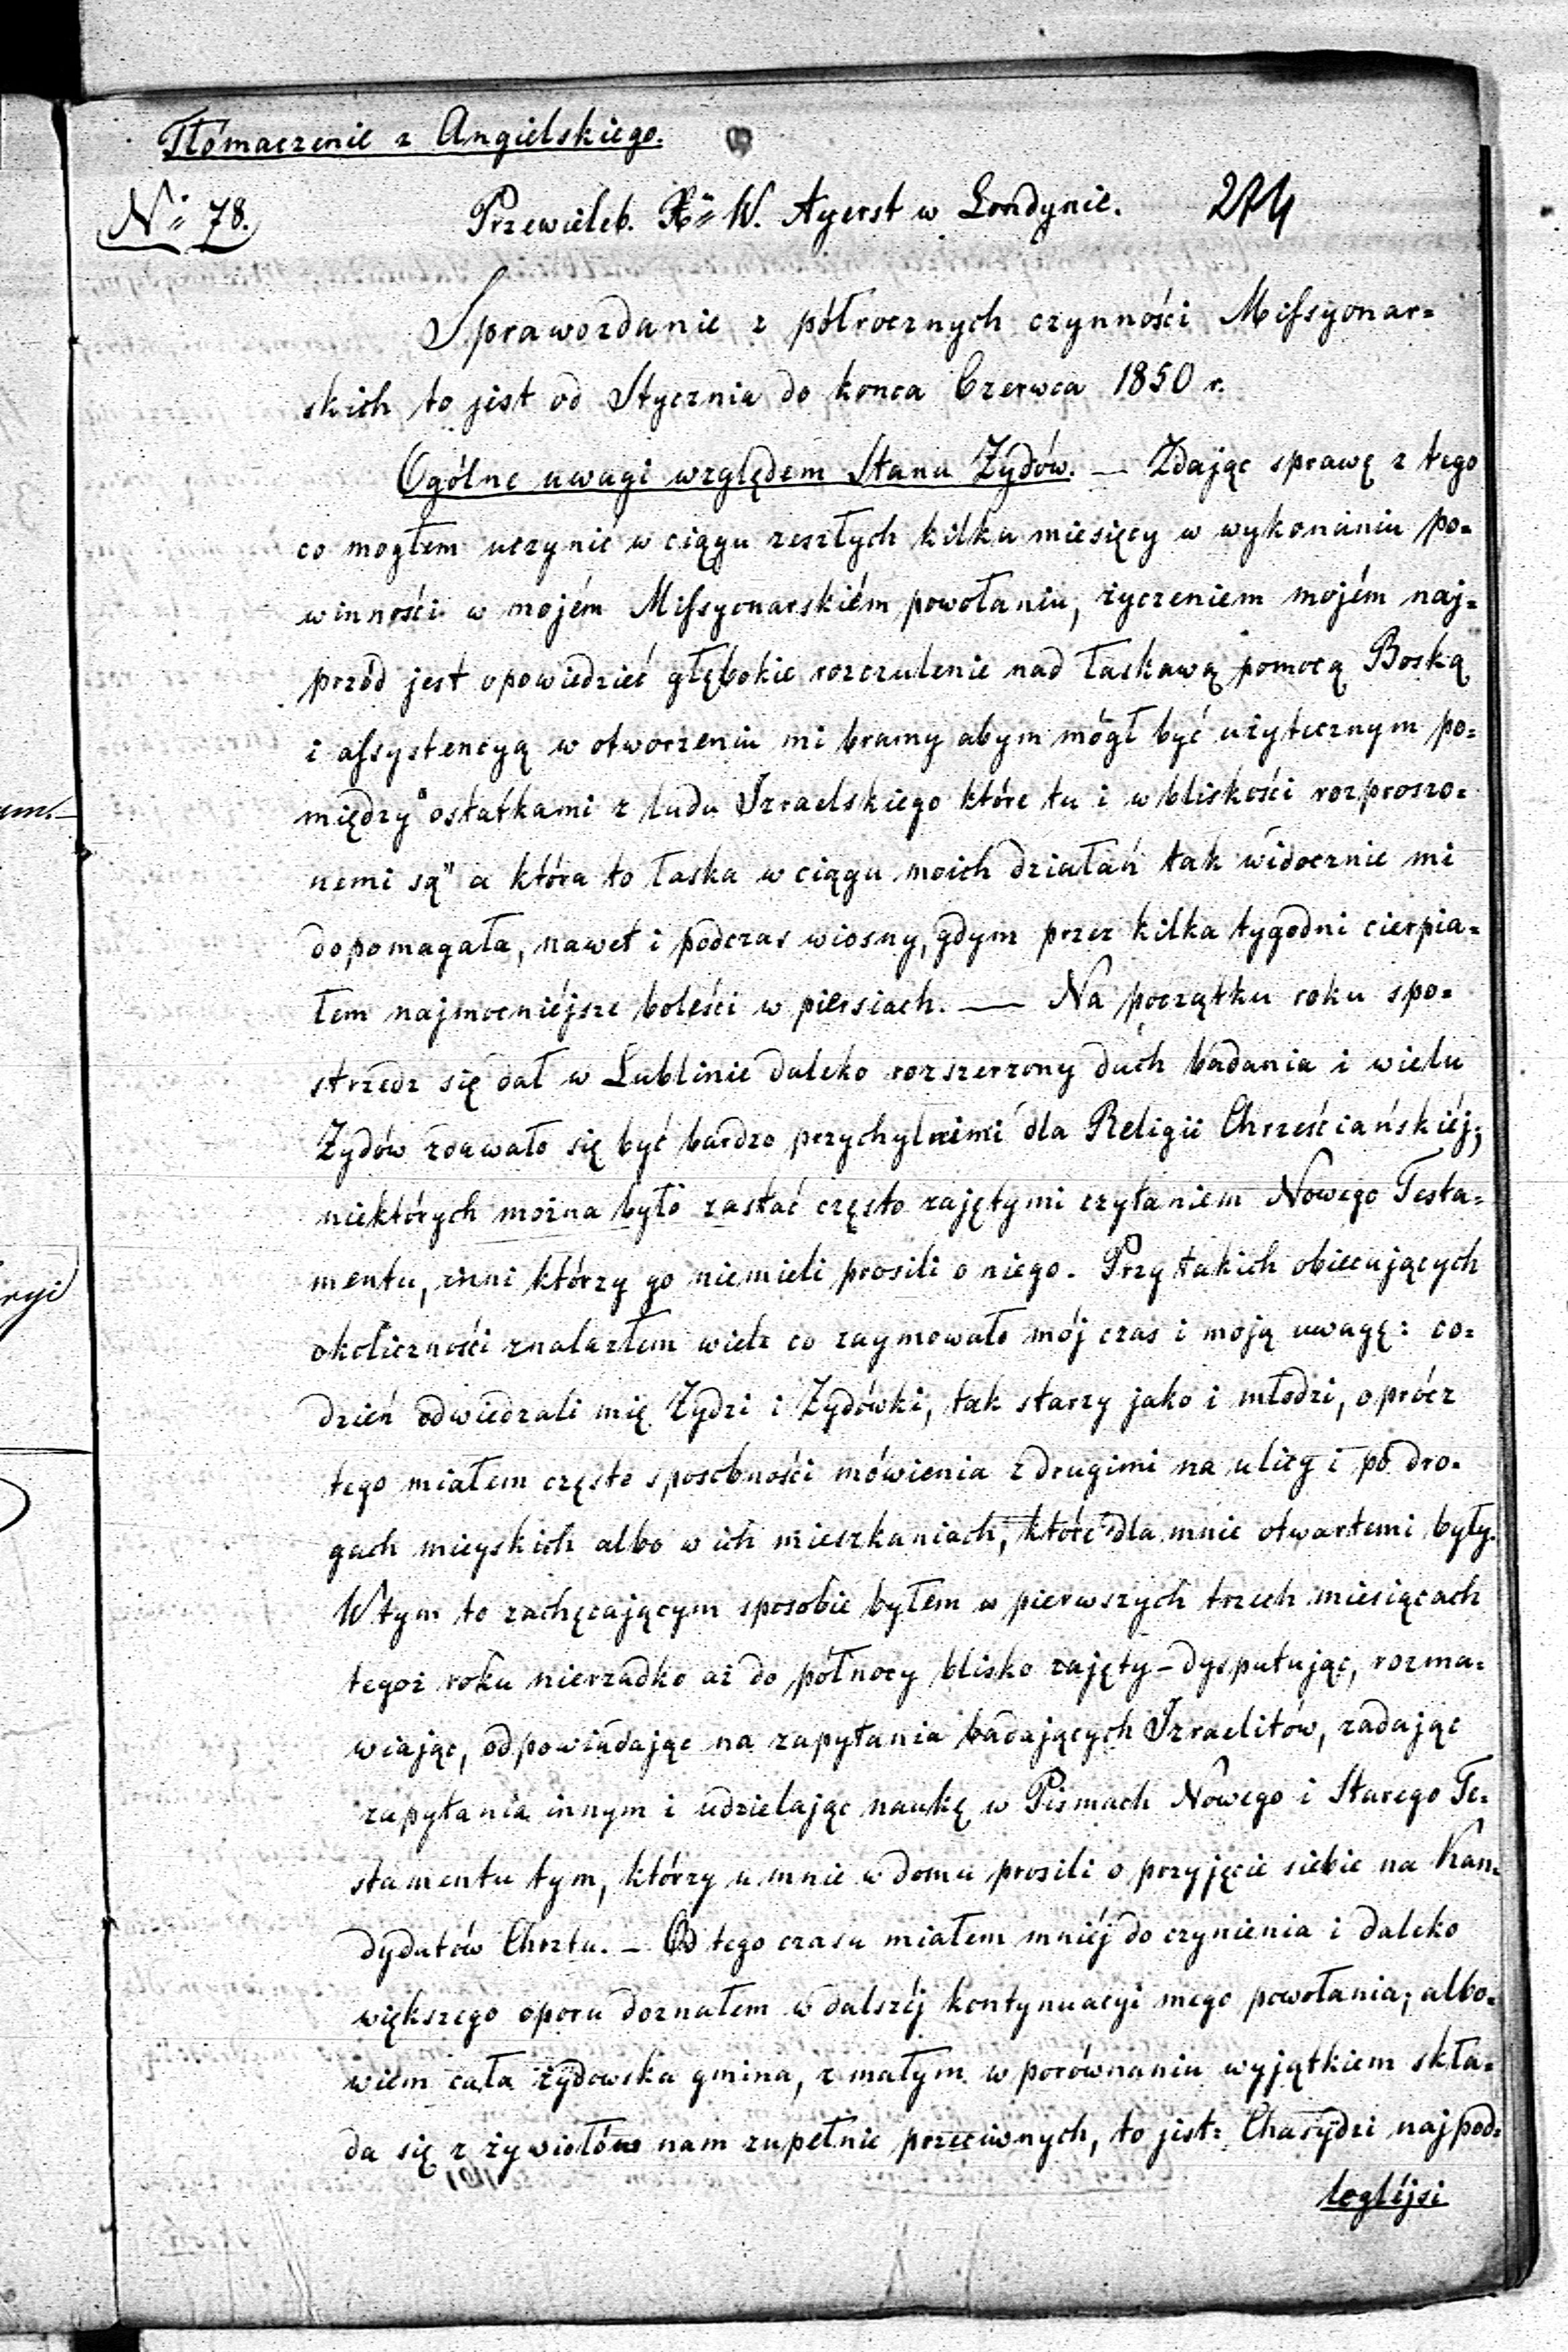 Tłómaczenie z Angielskiego.
Nº 78.
Przewieleb. X. W. Ayerst w Londynie.
274
Sprawozdanie z półrocznych czynności Missyonar=
skich to jest od Stycznia do konca Czerwca 1850 r.
Ogólne uwagi względem Stanu Żydów. — Zdając sprawę z tego
co mogłem uczynić w ciągu zeszłych kilku miesięcy w wykonaniu po=
winności w mojém Missyonarskiém powołaniu, życzeniem mojém naj=
przód jest opowiedzieć głębokie rozczulenie nad łaskawą pomocą Boską
i assystencyą w otworzeniu mi bramy abym mógł być użytecznym po=
między "ostatkami z ludu Izraelskiego które tu i w bliskości rozproszo=
nemi są" a która to łaska w ciągu moich działań tak widocznie mi
dopomagała, nawet i podczas wiosny, gdym przez kilka tygodni cierpia=
łem najmocniéjsze boleści w piersiach. — Na początku roku spo=
strzedz się dał w Lublinie daleko rozszerzony duch badania i wielu
Żydów zdawało się być bardzo przychylnimi dla Religii Chrześciańskiéj;
niektórych można było zastać często zajętymi czytaniem Nowego Testa=
mentu, inni którzy go niemieli prosili o niego. Przy takich obiecujących
okoliczności znalazłem wiele co zaymowało mój czas i moją uwagę: co=
dzień odwiedzali mię Żydzi i Żydówki, tak starzy jako i młodzi, oprócz
tego miałem często sposobności mówienia z drugimi na ulicy i po dro=
gach mieyskich albo w ich mieszkaniach, które dla mnie otwartemi były.
W tym to zachęcającym sposobie byłem w pierwszych trzech miesiącach
tegoż roku nierzadko aż do północy blisko zajęty – dysputując, rozma=
wiając, odpowiadając na zapytania badających Izraelitów, zadając
zapytania innym i udzielając naukę w Pismach Nowego i Starego Te=
stamentu tym, którzy u mnie w domu prosili o przyjęcie siebie na Kan=
dydatów Chrztu. — Od tego czasu miałem mniéj do czynienia i daleko
większego oporu doznałem w dalszéj kontynuacyi mego powołania; albo=
wiem cała żydowska gmina, z małym w porównaniu wyjątkiem skła=
da się z żywiołów nam zupełnie przeciwnych, to jest: Chasydzi najpod=
leglójsi